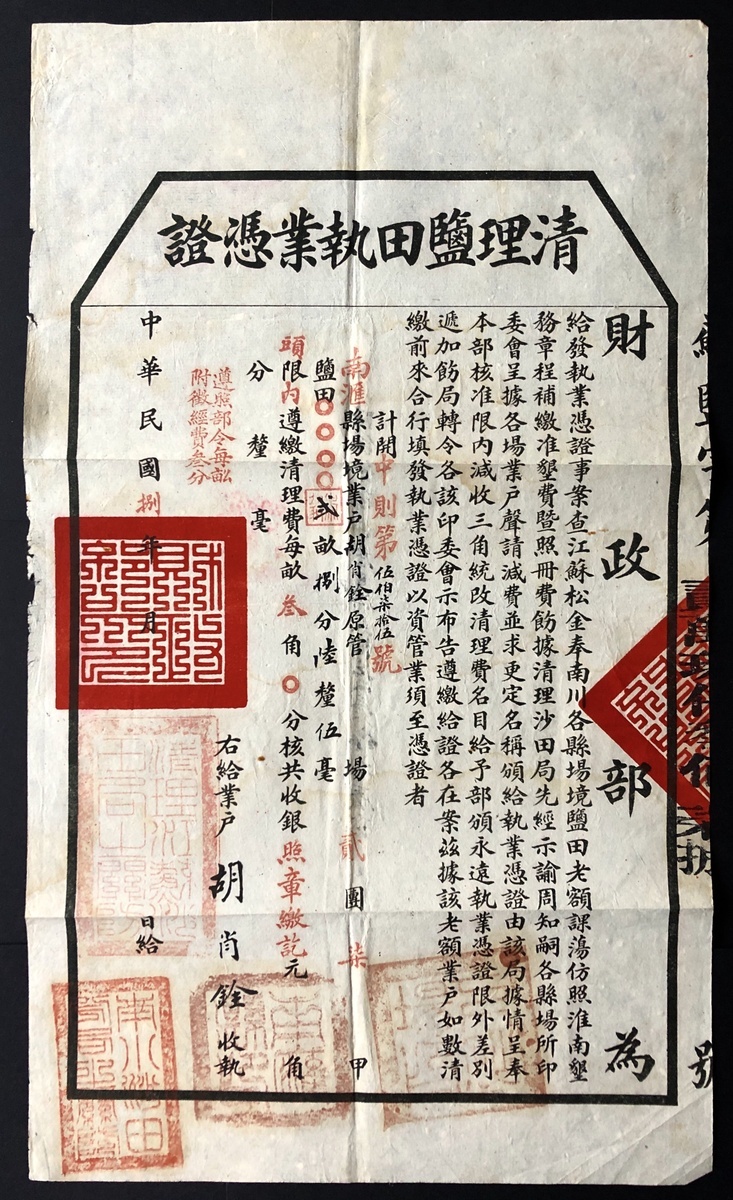 清理鹽田執業憑證
財政部為
給發執業憑證事案查江蘇松金奉南川各縣場境鹽田老額課蕩仿照淮南墾
務章程補繳准墾費暨照冊費飭據清理沙田局先經示諭周知嗣各縣場所印
委會呈據各場業戶聲請減費並求更定名稱頒給執業憑證由該局據情呈奉
本部核准限內減收三角統改清理費名目給予部頒永遠執業憑證限外差別
遞加飭局轉令各該印委會示布告遵繳給證各在案茲據該老額業戶如數清
繳前來合行填發執業憑證以資管業須至憑證者
計開中則第伍伯柒拾伍號
南滙縣場境業戶胡肖銓原管 場貳團柒甲
鹽田〇〇〇〇貳畝捌分陸釐伍毫
頭限內遵繳清理費每畝叁角〇分核共收銀照章繳訖元角
分釐毫
遵照部令每畝
附徵經費叁分
右給業戶胡肖銓收執
中華民國捌年月日給